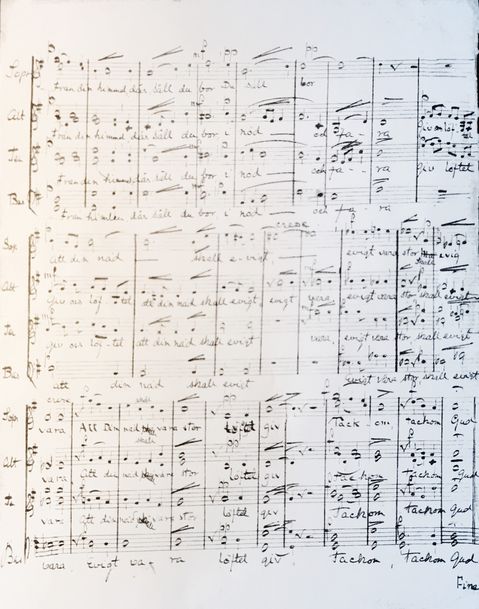 Sopr
Från den himmel där säll du bor Du säll bor
Alt
Från den himmel där säll du bor i nöd och fa - ra
Ten
Från den himmel där säll du bor i nöd och fa - ra giv löftet
Bas
Från himlen där säll du bor i nöd och fa - ra
Sop
Att din nåd skall evigt evigt vara stor evig
Alt
giv oss löf - tet att din nåd skall evigt, evigt vara, evigt vara stor skall evigt
Ten
giv oss löf - tet att din nåd skall evigt vara, evigt vara stor skall evigt
Bas
att din nåd skall evigt evigt vara stor skall evigt
Sopr
vara Att Din nåd vara stor löftet giv Tack - om tackom Gud
Alt
vara Att din nåd vara stor löftet giv Tackom tackom Gud
Te
vara Att din nåd vara stor löftet giv Tackom tackom Gud
Bas
vara evigt va - ra löftet giv Tackom, Tackom Gud
Fine